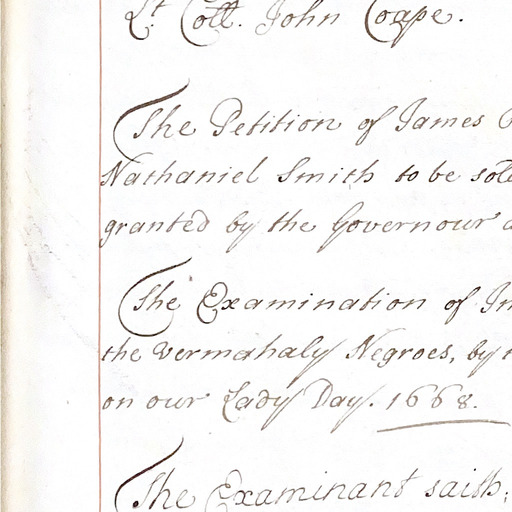 Lt. Coll. John Coape.
The Petition of James
Nathaniel Smith to be sold
granted by the Governour
The Examination of
the vermahaly Negroes, by
on our Lady Day. 1668.
The Examinant saith,